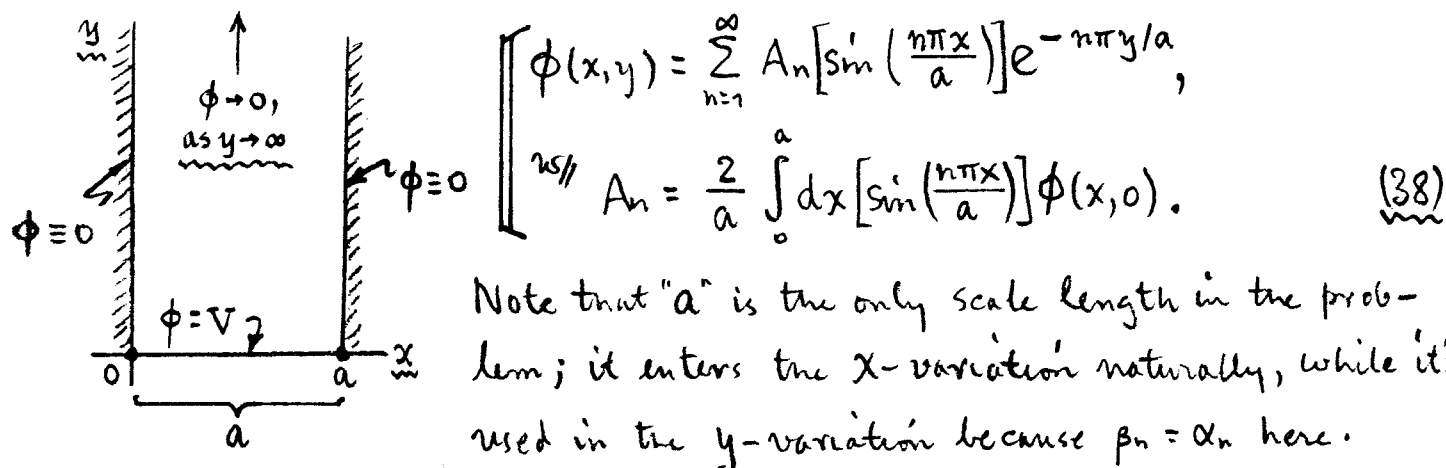 y
φ→0,
as y→∞
φ≡0
φ≡0
φ=V
0 a x
a
φ(x,y) = ∑_{n=1}^{∞} A_n [sin(nπx/a)] e^{-nπy/a},
ws// A_n = 2/a ∫_0^a dx [sin(nπx/a)] φ(x,0). (38)
Note that "a" is the only scale length in the prob-
lem; it enters the x-variation naturally, while it's
used in the y-variation because β_n = α_n here.